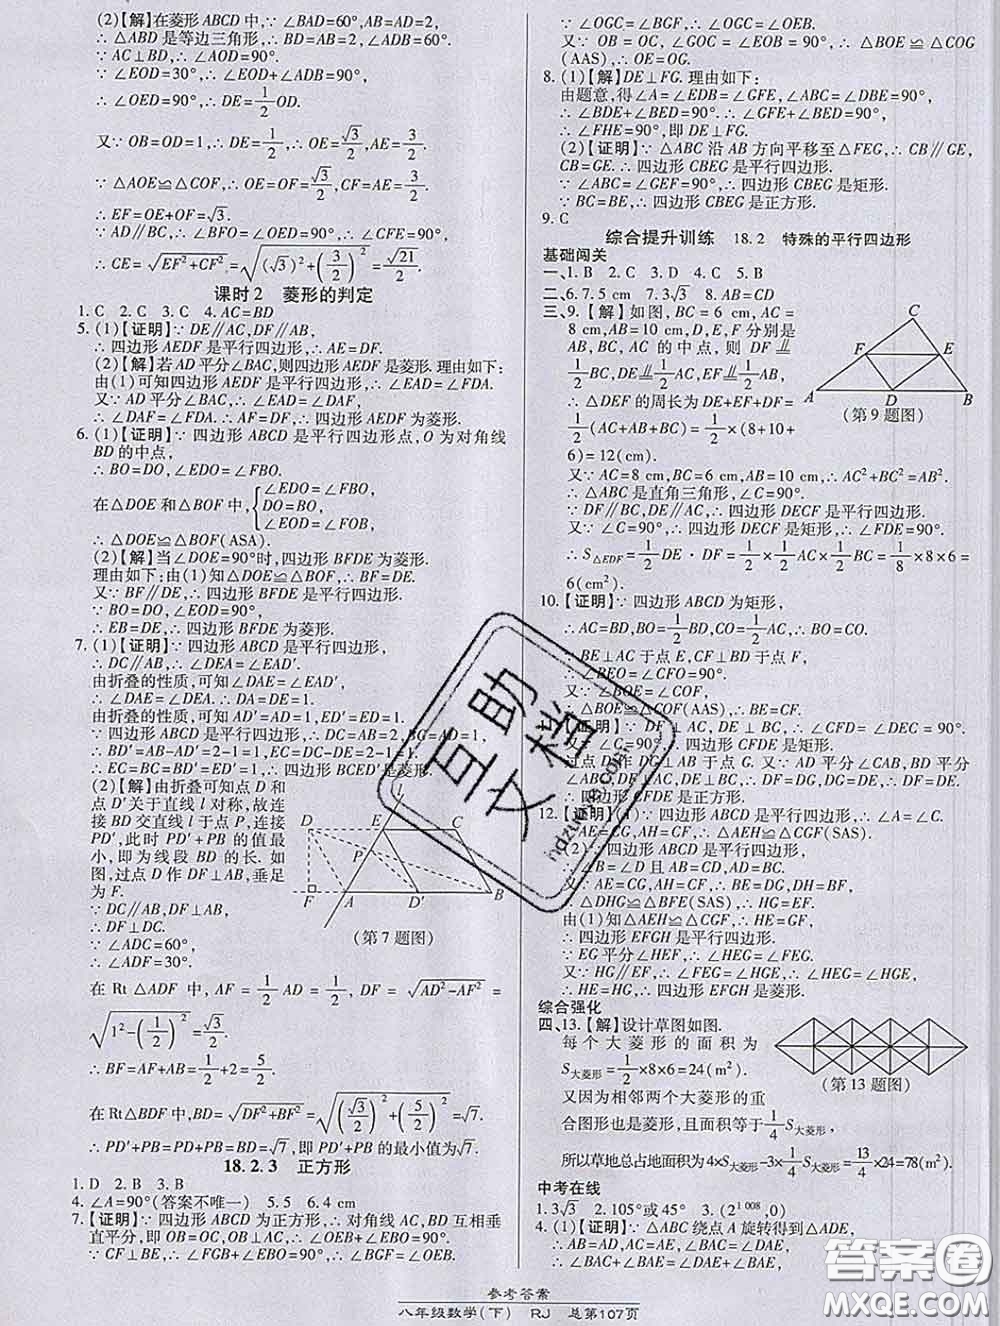 (2)【解】在菱形 ABCD 中,∵∠BAD=60°,AB=AD=2,
∴△ABD 是等边三角形,∴BD=AB=2,∠ADB=60°.
∵AC⊥BD,∴∠AOD=90°.
∵∠EOD=30°,∴∠EOD+∠ADB=90°.
∴∠OED=90°,∴DE=1/2 OD.
又∵OB=OD=1,∴DE=1/2,∴OE=√3/2,AE=3/2.
∵△AOE≌△COF,∴OE=OF=√3/2,CF=AE=3/2.
∴EF=OE+OF=√3.
∵AD∥BC,∴∠BFO=∠OED=90°.
∴CE=√(EF²+CF²)=√((√3)²+(3/2)²)=√21/2.
课时2 菱形的判定
1.C 2.C 3.C 4.AC=BD
5.(1)【证明】∵DE∥AC,DF∥AB,
∴四边形 AEDF 是平行四边形,∴AE=DF.
(2)【解】若 AD 平分∠BAC,则四边形 AEDF 是菱形.理由如下:
由(1)可知四边形 AEDF 是平行四边形,∴∠EAD=∠FDA.
又∵AD 平分∠BAC,∴∠EAD=∠DAF,
∴∠DAF=∠FDA.∴AF=DF,∴四边形 AEDF 为菱形.
6.(1)【证明】∵四边形 ABCD 是平行四边形点,O 为对角线
BD 的中点,
∴BO=DO,∠EDO=∠FBO.
在△DOE 和△BOF 中,{∠EDO=∠FBO,
DO=BO,
∠EOD=∠FOB,
∴△DOE≌△BOF(ASA).
(2)【解】当∠DOE=90°时,四边形 BFDE 为菱形.
理由如下:由(1)知△DOE≌△BOF,∴BF=DE.
又∵BF∥DE,∴四边形 BFDE 是平行四边形.
∵BO=DO,∠EOD=90°,
∴EB=DE,∴四边形 BFDE 为菱形.
7.(1)【证明】∵四边形 ABCD 是平行四边形,
∴DC∥AB,∴∠DEA=∠EAD′.
由折叠的性质,可知∠DAE=∠EAD′,
∴∠DAE=∠DEA.∴DA=DE=1.
由折叠的性质,可知 AD′=AD=1,ED′=ED=1.
∵四边形 ABCD 是平行四边形,∴DC=AB=2,BG=AD=1.
∴BD′=AB-AD′=2-1=1,EC=DC-DE=2-1=1.
∴EC=BC=BD′=ED′=1,∴四边形 BCED′是菱形.
(2)【解】由折叠可知点 D 和
点 D′关于直线 l 对称,故连
接 BD 交直线 l 于点 P,连接
PD′,此时 PD′+PB 的值最
小,即为线段 BD 的长.如
图,过点 D 作 DF⊥AB,垂足
为 F.
∵DC∥AB,DF⊥AB,
∴DF⊥DC.
∵∠ADC=60°,
∴∠ADF=30°.
l
D E C
P
F A D′ B
(第7题图)
在 Rt△ADF 中,AF=1/2 AD=1/2,DF=√(AD²-AF²)=
√(1²-(1/2)²)=√3/2.
∴BF=AF+AB=1/2+2=5/2.
在 Rt△BDF 中,BD=√(DF²+BF²)=√((√3/2)²+(5/2)²)=√7.
∴PD′+PB=PD+PB=BD=√7,即 PD′+PB 的最小值为√7.
18.2.3 正方形
1.D 2.B 3.B
4.∠A=90°(答案不唯一) 5.5 6.4 cm
7.【证明】∵四边形 ABCD 为正方形,∴对角线 AC,BD 互相垂
直平分,即 OB=OC,OB⊥AC,∴∠OEB+∠EBO=90°.
∵CF⊥BE,∴∠FGB+∠EBO=90°,∴∠BGF=∠OEB.
∵∠OGC=∠BGF,∴∠OGC=∠OEB.
又∵OB=OC,∠GOC=∠EOB=90°,∴△BOE≌△COG
(AAS),∴OE=OG.
8.(1)【解】DE⊥FG.理由如下:
由题意,得∠A=∠EDB=∠GFE,∠ABC=∠DBE=90°,
∴∠BDE+∠BED=90°.∴∠GFE+∠BED=90°,
∴∠FHE=90°,即 DE⊥FG.
(2)【证明】∵△ABC 沿 AB 方向平移至△FEG,∴CB∥GE,
CB=GE.∴四边形 CBEG 是平行四边形.
∵∠ABC=∠GEF=90°,∴四边形 CBEG 是矩形.
∵BC=BE,∴四边形 CBEG 是正方形.
9.C
综合提升训练 18.2 特殊的平行四边形
基础闯关
一、1.B 2.C 3.C 4.C 5.B
二、6.7.5 cm 7.3√3 8.AB=CD
三、9.【解】如图,BC=6 cm,AC=
8 cm,AB=10 cm,D,E,F 分别是
AB,BC,AC 的中点,则 DF∥=
1/2 BC,DE∥=1/2 AC,EF∥=1/2 AB,
∴△DEF 的周长为 DE+EF+DF=
1/2(AC+AB+BC)=1/2×(8+10+
6)=12(cm).
C
F E
A D B
(第9题图)
又∵AC=8 cm,BC=6 cm,AB=10 cm,∴AC²+BC²=AB².
∴△ABC 是直角三角形,∴∠C=90°.
∵DF∥BC,DE∥AC,∴四边形 DECF 是平行四边形.
又∵∠C=90°,∴四边形 DECF 是矩形,∴∠FDE=90°.
∴S△EDF=1/2 DE·DF=1/2×1/2 AC×1/2 BC=1/8×8×6=
6(cm²).
10.【证明】∵四边形 ABCD 为矩形,
∴AC=BD,BO=1/2 BD,CO=1/2 AC,∴BO=CO.
∵BE⊥AC 于点 E,CF⊥BD 于点 F,
∴∠BEO=∠CFO=90°.
又∵∠BOE=∠COF,
∴△BOE≌△COF(AAS),∴BE=CF.
【证明】∵DF⊥AC,DE⊥BC,∴∠CFD=∠DEC=90°.
又∵∠C=90°,∴四边形 CFDE 是矩形.
过点 D 作 DG⊥AB 于点 G.又∵AD 平分∠CAB,BD 平分
∠ABC,DF⊥AC,DE⊥BC,∴DF=DG,DG=DE,∴DF=DE.
∴四边形 CFDE 是正方形.
12.【证明】(1)∵四边形 ABCD 是平行四边形,∴∠A=∠C.
∵AE=CG,AH=CF,∴△AEH≌△CGF(SAS).
(2)∵四边形 ABCD 是平行四边形,
∴∠B=∠D 且 AB=CD,AD=BC.
∵AE=CG,AH=CF,∴BE=DG,DH=BF,
∴△DHG≌△BFE(SAS),∴HG=EF.
由(1)知△AEH≌△CGF,∴HE=GF.
∴四边形 EFGH 是平行四边形.
∵EG 平分∠HEF,∴∠HEG=∠FEG.
又∵HG∥EF,∴∠FEG=∠HGE,∴∠HEG=∠HGE,
∴HE=HG,∴四边形 EFGH 是菱形.
综合强化
四、13.【解】设计草图如图.
每个大菱形的面积为
S大菱形=1/2×8×6=24(m²).
又因为相邻两个大菱形的重
合图形也是菱形,且面积等于1/4 S大菱形,
(第13题图)
所以草地总占地面积 4×S大菱形-3×1/4 S大菱形=13/4×24=78(m²).
中考在线
1.3√3 2.105°或45° 3.(2^1008,0)
4.(1)【证明】∵△ABC 绕点 A 旋转得到△ADE,
∴AB=AD,AC=AE,∠BAC=∠DAE,
参考答案
八年级数学(下) RJ 总第107页
互助文档
答案圈
MXQE.COM